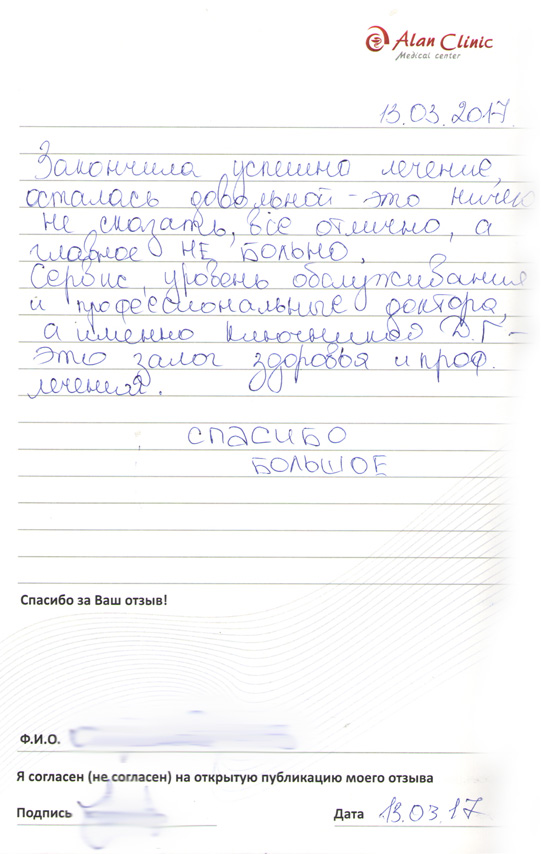 Alan Clinic
Medical center
13.03.2017
Закончила успешно лечение,
осталась довольной - это ничего
не сказать, все отлично, а
главное НЕ БОЛЬНО.
Сервис, уровень обслуживания
и профессиональные доктора,
а именно Ключников Д.Г -
это залог здоровья и проф.
лечения.
СПАСИБО
БОЛЬШОЕ
Спасибо за Ваш отзыв!
Ф.И.О.
Я согласен (не согласен) на открытую публикацию моего отзыва
Подпись Дата 13.03.17